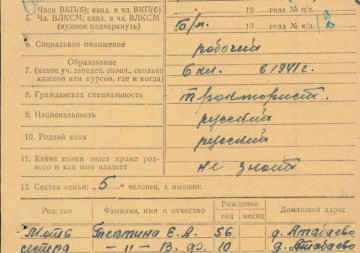 Член ВКП(б); канд. в чл. ВКП(б)
5. Чл. ВЛКСМ; канд. в чл. ВЛКСМ
(нужное подчеркнуть)
б/п. 19 года № п/д.
19 года № к/к.
6. Социальное положение рабочий
Образование
7. (какое уч. заведен. оконч., сколько классов или курсов, где и когда) 6 кл. в 1941 г.
8. Гражданская специальность тракторист.
9. Национальность русский
10. Родной язык русский
11. Какие языки знает кроме родного и как ими владеет не знает
12. Состав семьи: „5" человек, а именно:
Родство Фамилия, имя и отчество Рождение год месяц Домашний адрес
Мать Е. А. 56 д. Атабаево
сестра -"- 10 д. Атабаево